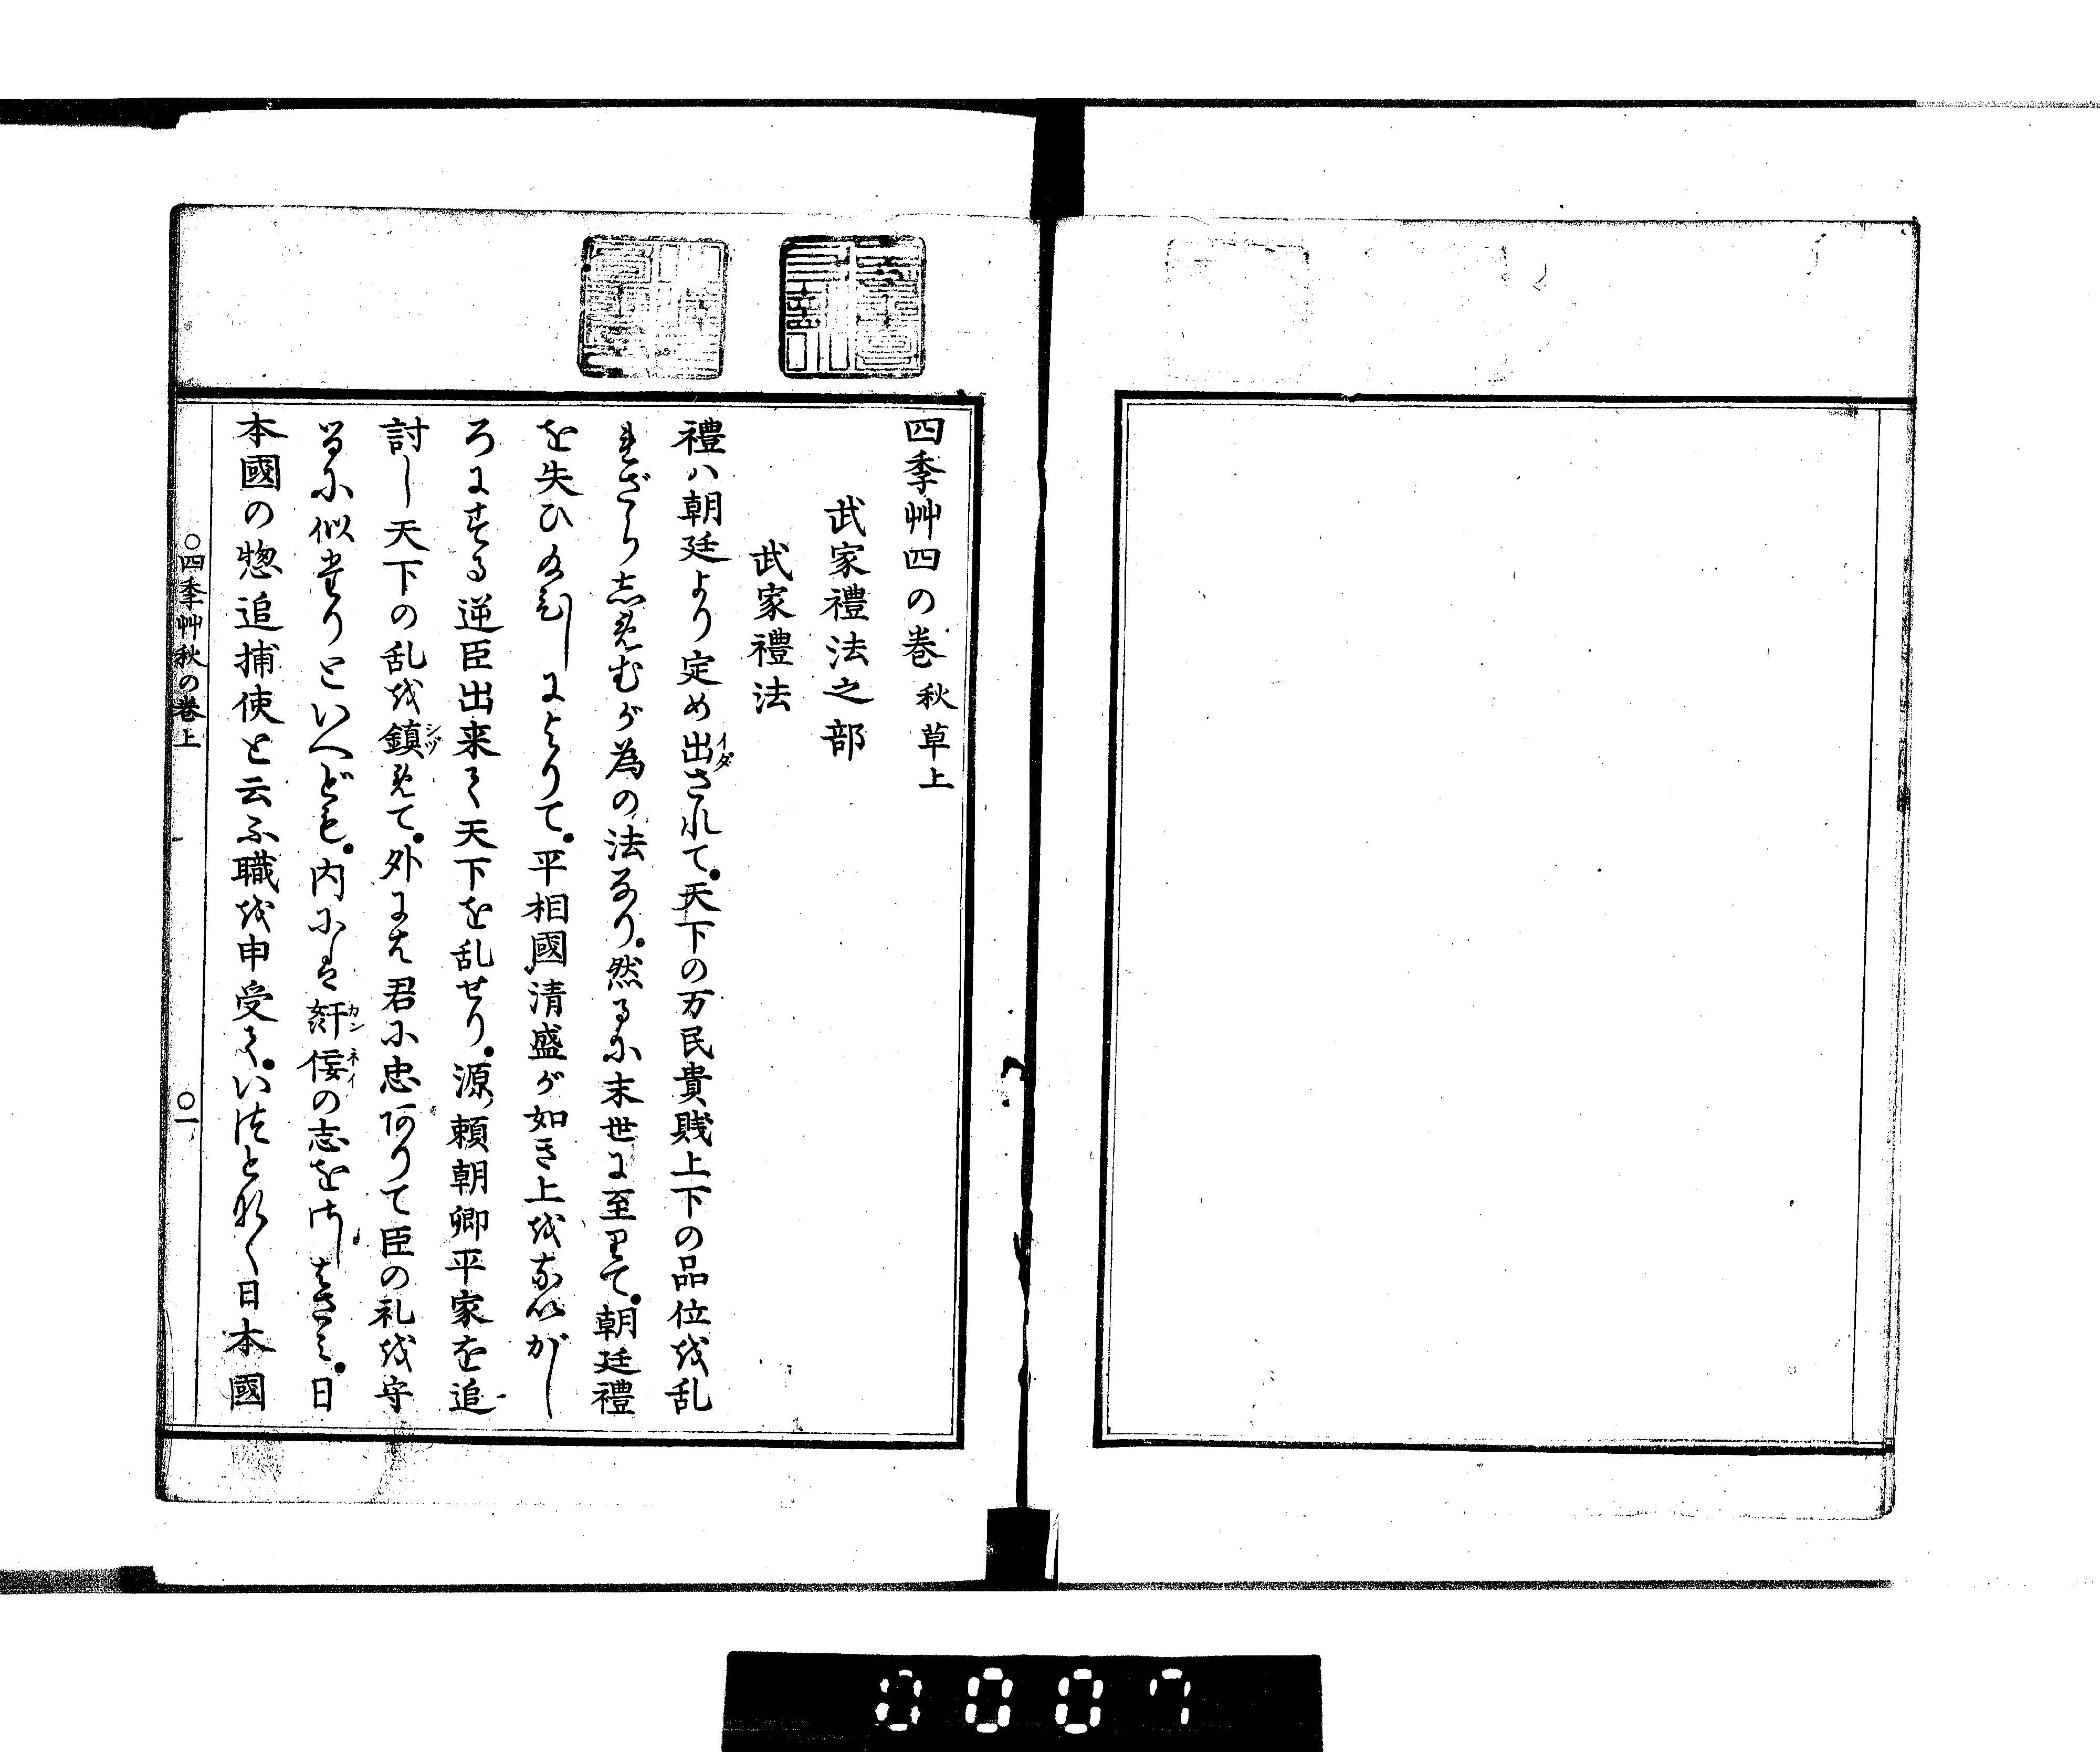 四季艸四の巻 秋草上
武家禮法之部
武家禮法
禮ハ朝廷より定め出されて。天下の万民貴賎上下の品位を乱
れざらしめむが為の法なり。然るに末世に至りて。朝廷禮
を失ひ給ひしによりて。平相國清盛が如き上をないがし
ろにする逆臣出来て天下を乱せり。源頼朝卿平家を追
討し天下の乱を鎮めて。外には君に忠ありて臣の礼を守
るに似たりといへども。内には姧佞の志をさしはさみ。日
本國の惣追捕使と云ふ職を申受て。いつとなく日本國
○四季艸秋の巻上 ○一
イダ
シヅ
カン
ネイ
0007